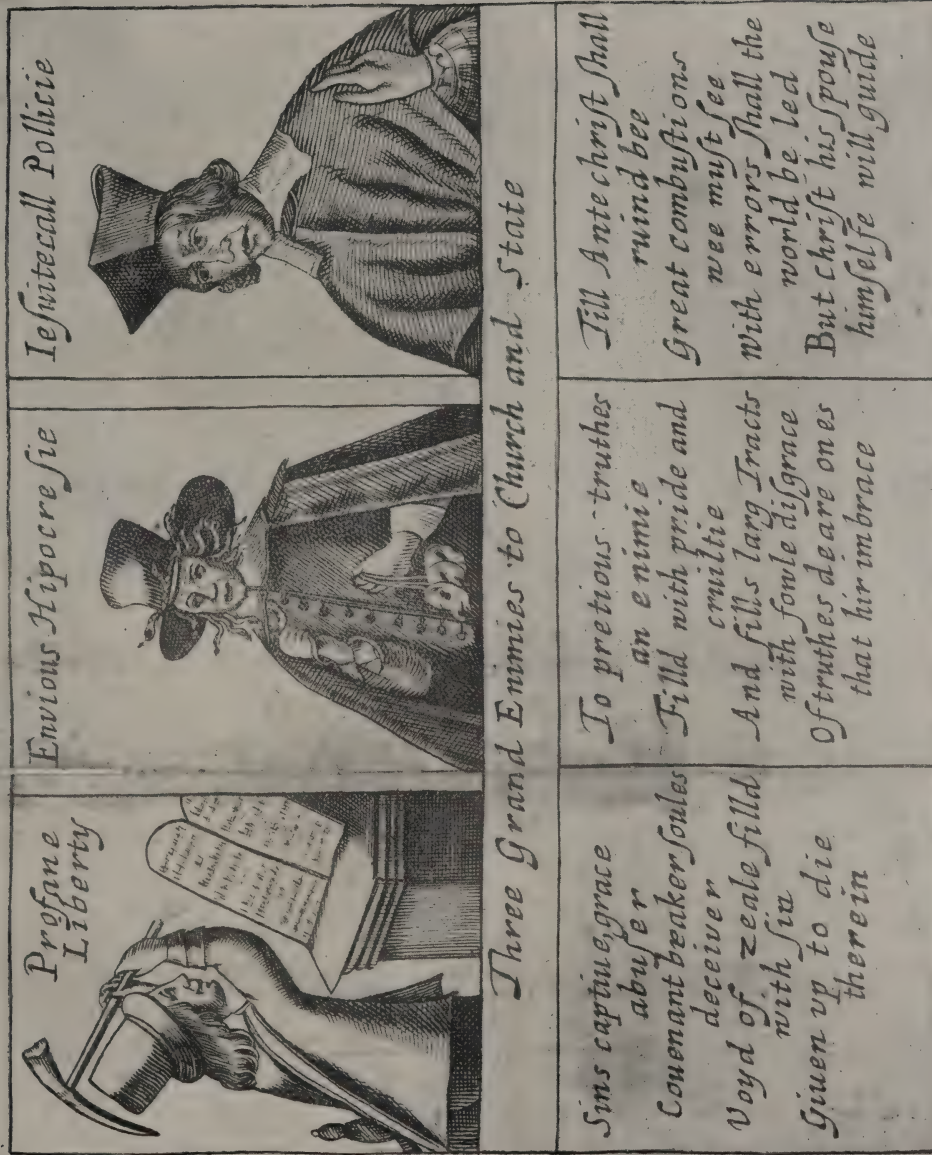 Profane
Liberty
Envious Hipocreſie
Ieſuitecall Pollicie
Three Grand Enimies to Church and State
Sins captiue, grace
abuſer
Couenant breaker ſoules
deceiver
Voyd of zeale filld
with ſin
Giuen up to die
therein
To pretious truthes
an enimie
Filld with pride and
cruiltie
And fills larg Tracts
with fowle diſgrace
Of truthes deare ones
that hir imbrace
Till Antechriſt ſhall
ruind bee
Great combuſtions
wee muſt ſee
With errors ſhall the
world be led
But Chriſt his ſpouſe
himſelfe will guide